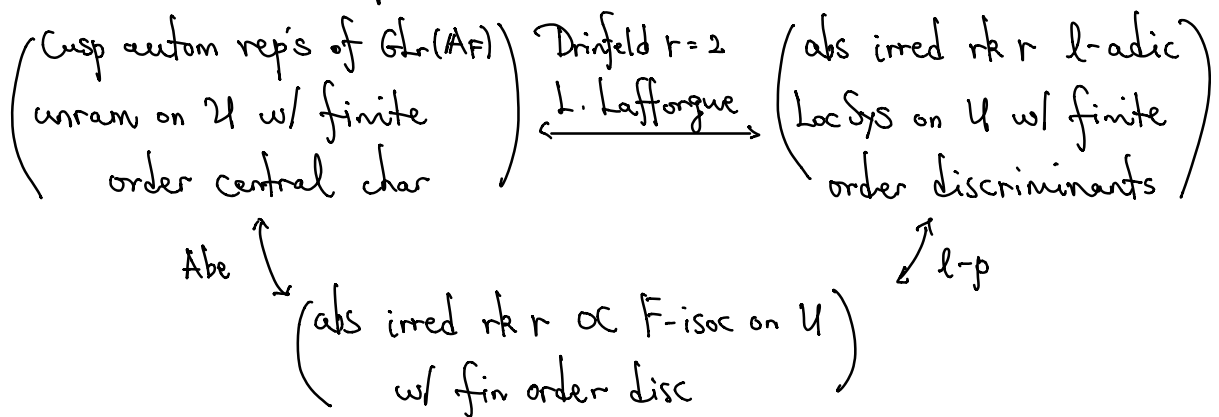 Cusp autom rep's of GLr(AF)
unram on U w/ finite
order central char
Drinfeld r=2
L. Lafforgue
abs irred rk r l-adic
LocSys on U w/ finite
order discriminants
Abe
l-p
abs irred rk r OC F-isoc on U
w/ fin order disc